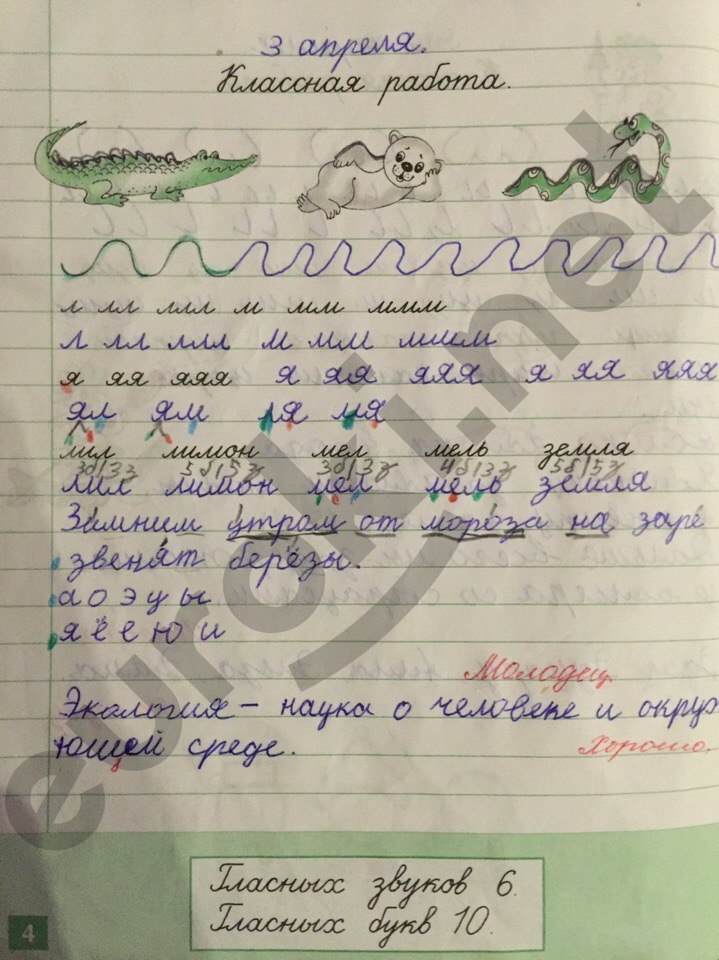 3 апреля.
Классная работа.
л лл ллл м мм ммм
л лл ллл м мм ммм
я яя яяя я яя яяя я яя яяя
ял ям ля мя
мил лимон мел мель земля
3б/3з 5б/5з 3б/3з 4б/3з 5б/5з
мил лимон мел мель земля
Зимним утром от мороза на заре
звенят берёзы.
а о э у ы
я ё е ю и
Молодец
Экология – наука о человеке и окруж
ющей среде.
хорошо.
Гласных звуков 6.
Гласных букв 10.
4
euroki.net